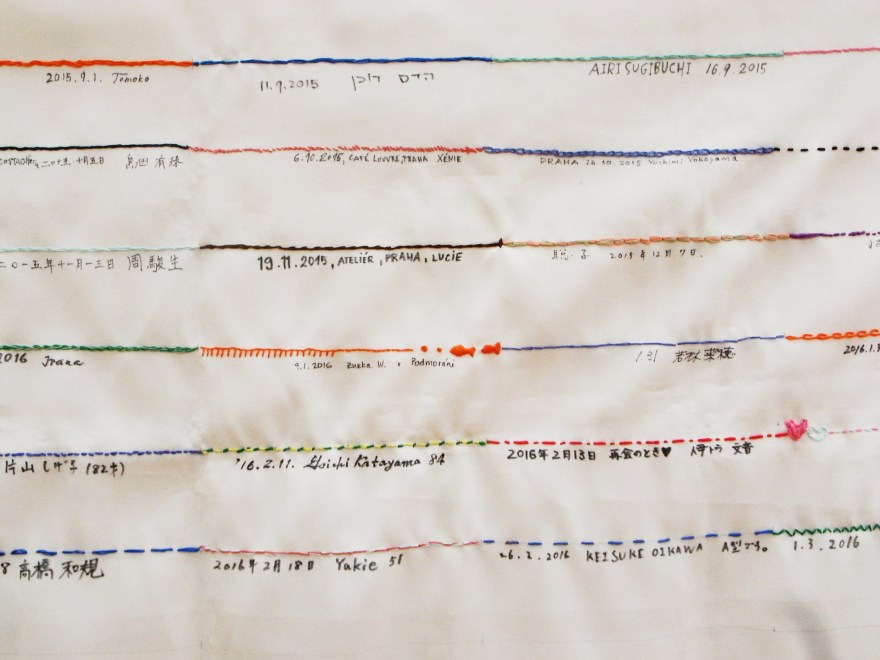 2015.9.1. Tomoko 11.9.2015 הדס דוכן AIRI SUGIBUCHI 16.9.2015
二〇十五. 十月五日 6.10.2015, CAFÉ LOUVRE, PRAHA XÉNIE PRAHA 26.10.2015 Yoshimi Yokoyama
二〇一五年十一月一三日 周駿生 19.11.2015, ATELIÉR, PRAHA, LUCIE 聡子 2015年12月7日.
2016 Irena 9.1.2016 Zuzka W. Podmoráni 1.31 2016.1.3
片山しげ子 (82才) '16.2.11. Katayama 84 2016年2月13日 再会のとき♥ 伊トウ 文香
8 高橋和規 2016年2月18日 Yukie 51 26.2.2016 KEISUKE OIKAWA A型です。 1.3.2016